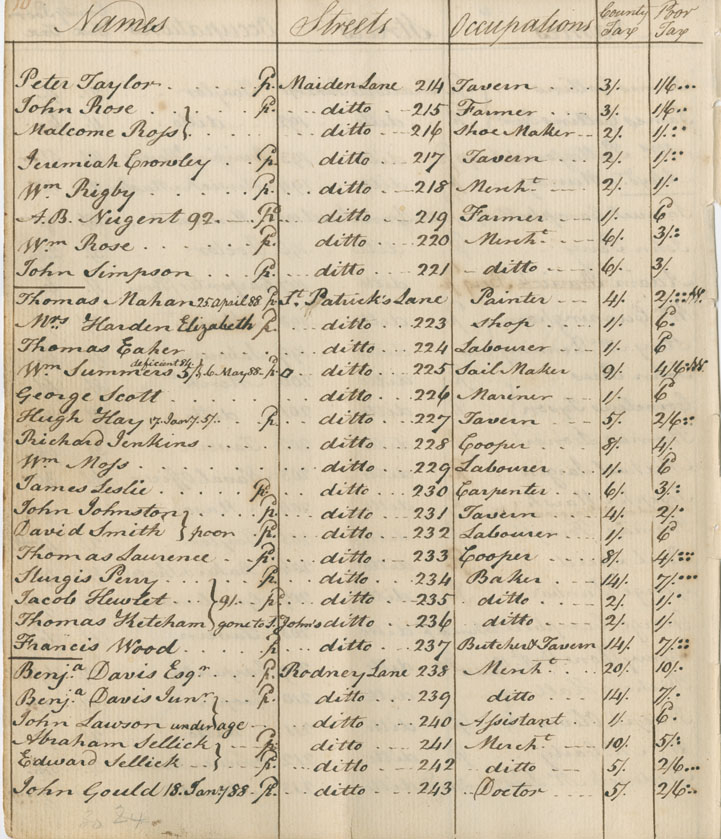 Names Streets Occupations County Tax Poor Tax
Peter Taylor . . p. Maiden Lane 214 Tavern . . . 3/. 1/6...
John Rose . . . p. ditto . . . 215 Farmer . . . 3/. 1/6..
Malcome Ross . . ditto . . . 216 Shoe Maker 2/. 1/.
Jeremiah Crowley . . p. ditto . . . 217 Tavern . . . 2/. 1/.
Wm Rigby . . . p. ditto . . . 218 Mercht 2/. 1/.
A.B. Nugent 92. p. ditto . . . 219 Farmer . . . 1/. 6
Wm Rose . . . p. ditto . . . 220 Mercht 6/. 3/.
John Simpson . . . p. ditto . . . 221 ditto . . . 6/. 3/.
Thomas Mahan 25 April 88 p. St. Patrick's Lane Painter . . . 4/. 2/.
Mrs Harden Elizabeth p. ditto . . . 223 Shop . . . 1/. 6.
Thomas Eaker . . . ditto . . . 224 Labourer . . 1/. 6
deficient 84.
Wm Summers 3/3. 6. May 88. p. ditto . . . 225 Sail Maker 9/. 4/6
George Scott . . . ditto . . . 226 Mariner . . 1/. 6
Hugh Hay 17. Janr 7. 5/. p. ditto . . . 227 Tavern . . . 5/. 2/6
Richard Jenkins . . . ditto . . . 228 Cooper . . . 8/. 4/.
Wm Moss . . . ditto . . . 229 Labourer . . 1/. 6
James Leslie . . . p. ditto . . . 230 Carpenter . . 6/. 3/.
John Johnston . . p. ditto . . . 231 Tavern . . . 4/. 2/.
David Smith } poor p. ditto . . . 232 Labourer . . 1/. 6
Thomas Laurence . . p. ditto . . . 233 Cooper . . . 8/. 4/.
Sturgis Perry . . . p. ditto . . . 234 Baker . . . 14/. 7/...
Jacob Hewlet . . } 9/. p. ditto . . . 235 ditto . . . 2/. 1/.
Thomas Ketcham gone to St. John's ditto . . . 236 ditto . . . 2/. 1/.
Francis Wood . . . p. ditto . . . 237 Butcher & Tavern 14/. 7/.
Benja Davis Esqr p. Rodney Lane 238 Mercht 20/. 10/.
Benja Davis Junr } p. ditto . . . 239 ditto . . . 14/. 7/.
John Lawson underage ditto . . . 240 Assistant . . 1/. 6.
Abraham Sellick } p. ditto . . . 241 Mercht 10/. 5/.
Edward Sellick } p. ditto . . . 242 ditto . . . 5/. 2/6...
John Gould 18. Janry 88. p. ditto . . . 243 Doctor . . . 5/. 2/6..